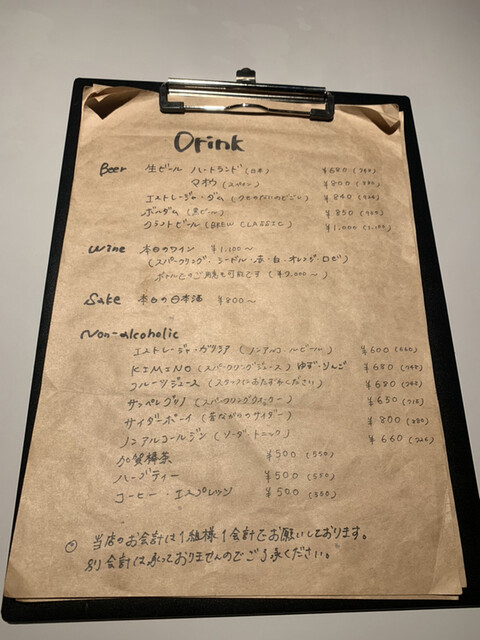 Drink
Beer 生ビール ハートランド (日本) ¥680 (748)
マオウ (スペイン) ¥800 (880)
エストレージャ・ダム ¥840 (924)
ボールダム (黒ビール) ¥850
クラフトビール (BREW CLASSIC) ¥1,000 (1,100)
Wine 本日のワイン ¥1,100〜
(スパークリング・シードル・赤・白・オレンジ・ロゼ)
ボトルでのご用意も可能です (¥7,000〜)
Sake 本日の日本酒 ¥800〜
Non-alcoholic
エストレージャ・ガリシア (ノンアルコールビール) ¥600 (660)
KIMINO (スパークリングジュース) ゆず・りんご ¥680 (748)
フルーツジュース (スタッフにおたずねください) ¥680 (748)
サンペレグリノ (スパークリングウォーター) ¥650 (715)
サイダーボーイ (昔ながらのサイダー) ¥800 (880)
ノンアルコールジン (ソーダ トニック) ¥660 (726)
加賀棒茶 ¥500 (550)
ハーブティー ¥500 (550)
コーヒー・エスプレッソ ¥500 (550)
◎ 当店のお会計は1組様1会計でお願いしております。
別会計は承っておりませんのでご了承ください。